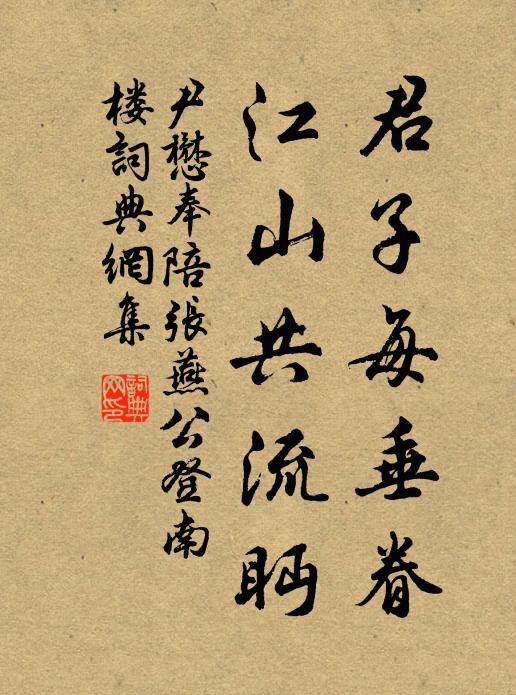 君子每垂眷
江山共流眄
尹懋奉陪張燕公登南
樓詞典網集
詞典
网印